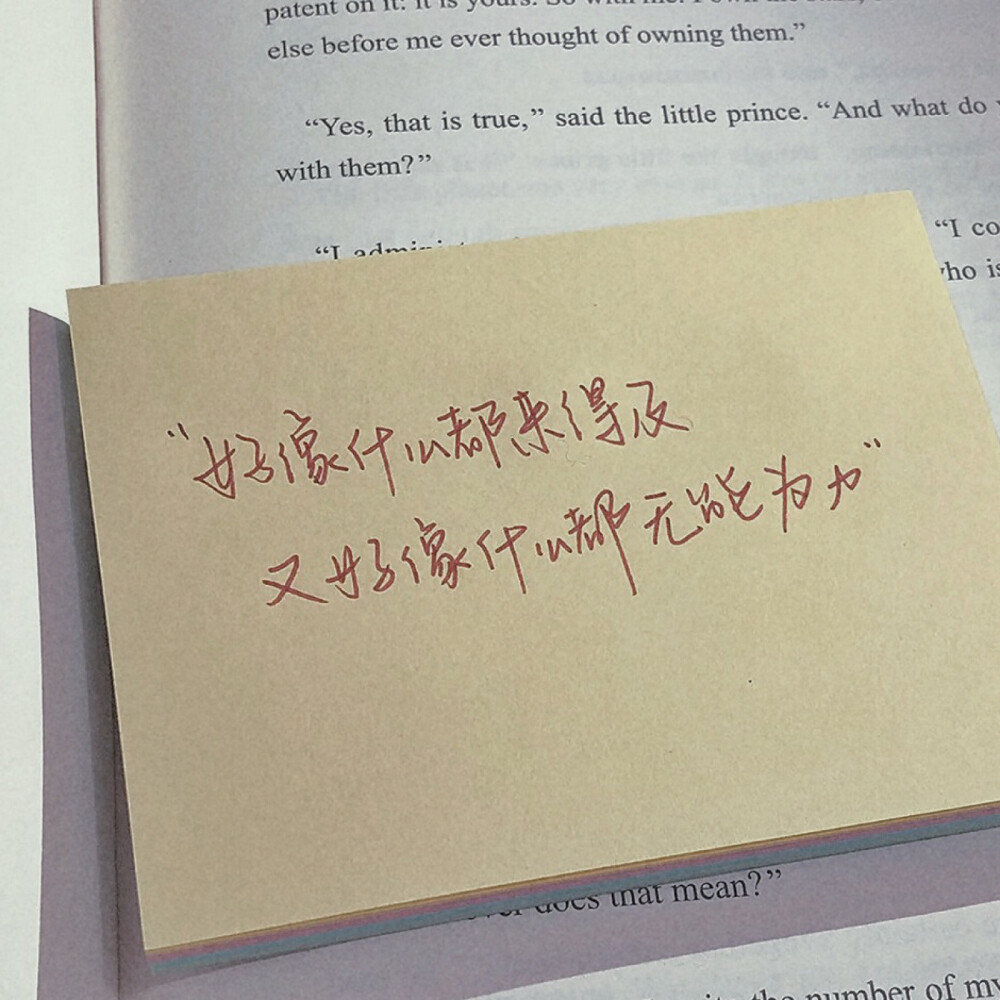 patent on it: it is yours. So with me:
else before me ever thought of owning them.”
“Yes, that is true,” said the little prince. “And what do
with them?”
“I “I co
who is
“好像什么都来得及
又好像什么都无能为力”
does that mean?”
the number of my